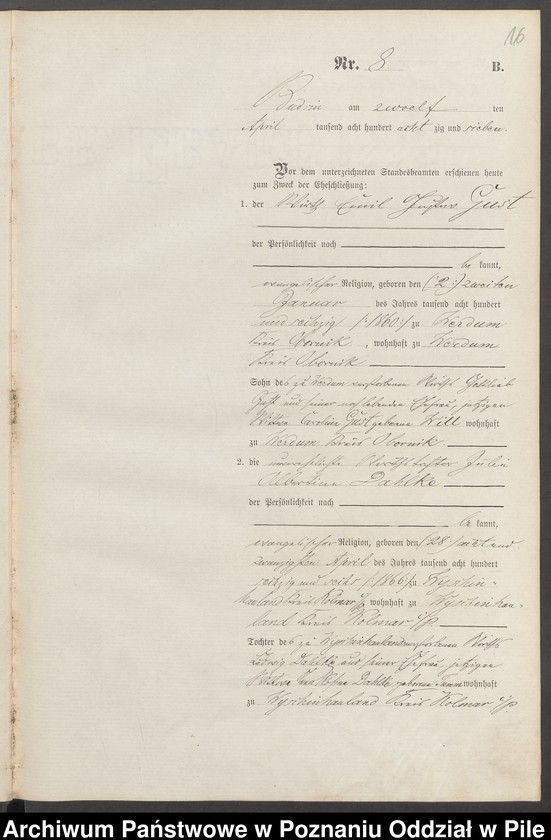 16
Nr. 8 B.
Budsin am zwoelf ten
April tausend acht hundert acht zig und sieben.
Vor dem unterzeichneten Standesbeamten erschienen heute
zum Zweck der Eheschließung:
1. der Wirth Emil Gustav Gust
der Persönlichkeit nach
be kannt,
evangelischer Religion, geboren den (:2:) zweiten
Januar des Jahres tausend acht hundert
und sechzig /:1860:/ zu Werdum
Kreis Obornik, wohnhaft zu Werdum
Kreis Obornik
Sohn des zu Werdum verstorbenen Wirths Gottlieb
Gust und seiner noch lebenden Ehefrau, jetzigen
Wittwe Caroline Gust geborene Will wohnhaft
zu Werdum Kreis Obornik.
2. die unverehelichte Wirthstochter Julie
Albertine Dahlke
der Persönlichkeit nach
be kannt,
evangelischer Religion, geboren den (:28:) acht und
zwanzigsten April des Jahres tausend acht hundert
sechzig und sechs /:1866:/ zu
hauland Kreis Kolmar i/P wohnhaft zu
land Kreis Kolmar i/P.
Tochter des zu verstorbenen Wirths
Ludwig Dahlke und seiner Ehefrau, jetzigen
Wittwe Dahlke, geborene wohnhaft
zu Kreis Kolmar i/P.
Archiwum Państwowe w Poznaniu Oddział w Pile